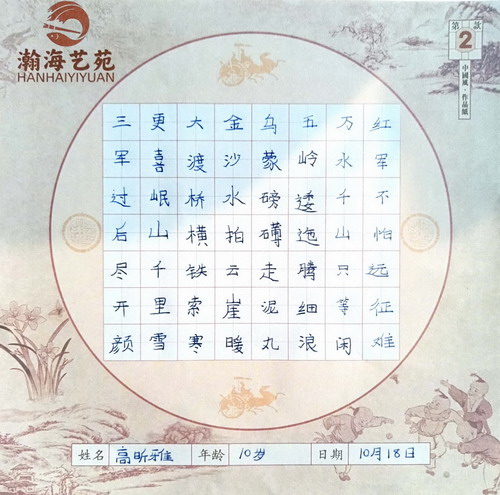 瀚海艺苑
HANHAIYIYUAN
第2款
中國風·作品紙
红军不怕远征难
万水千山只等闲
五岭逶迤腾细浪
乌蒙磅礴走泥丸
金沙水拍云崖暖
大渡桥横铁索寒
更喜岷山千里雪
三军过后尽开颜
姓名 高昕雅 年龄 10岁 日期 10月18日